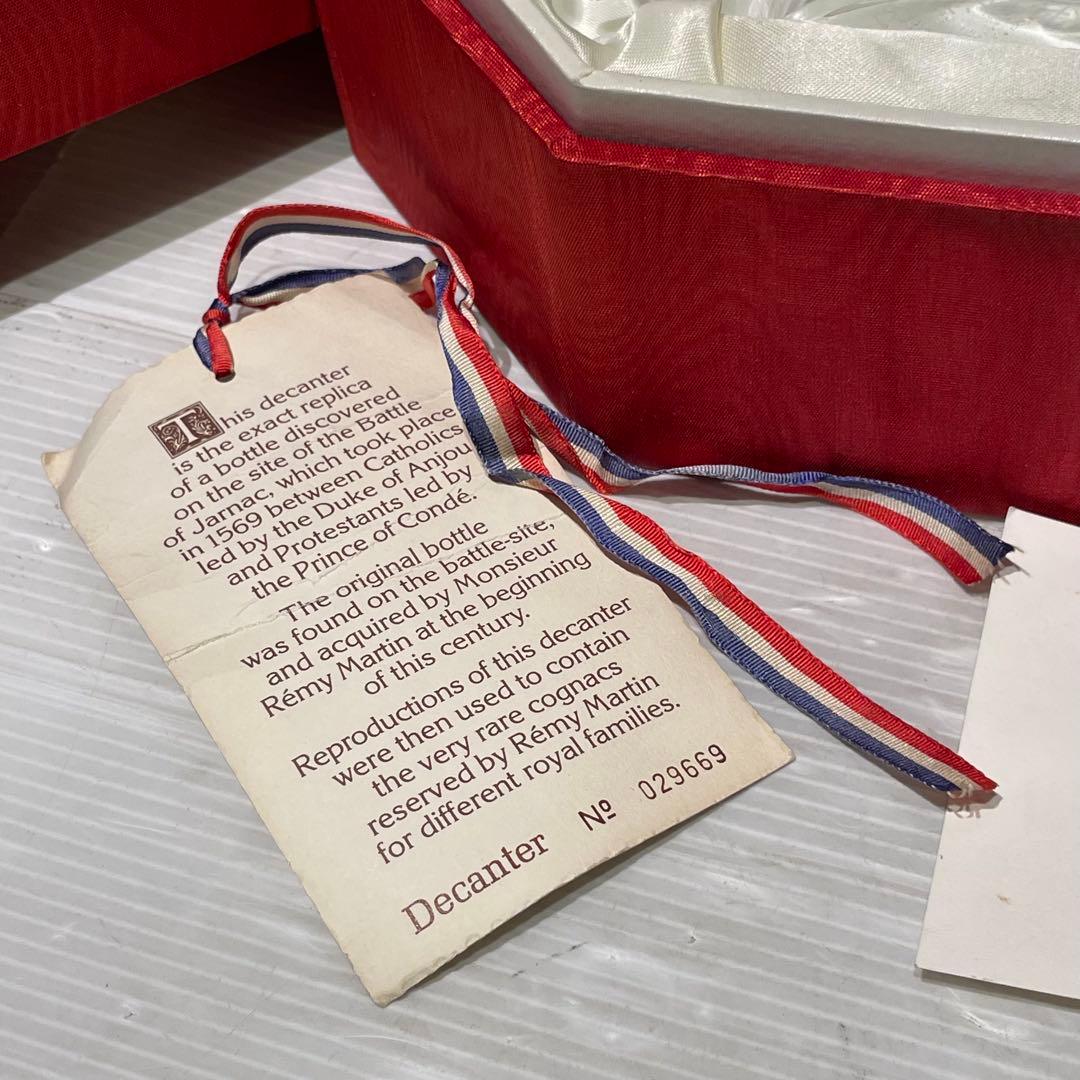 This decanter
is the exact replica
of a bottle discovered
on the site of the Battle
of Jarnac, which took place
in 1569 between Catholics
led by the Duke of Anjou
and Protestants led by
the Prince of Condé.
The original bottle
was found on the battle-site,
and acquired by Monsieur
Rémy Martin at the beginning
of this century.
Reproductions of this decanter
were then used to contain
the very rare cognacs
reserved by Rémy Martin
for different royal families.
Decanter Nº 029669